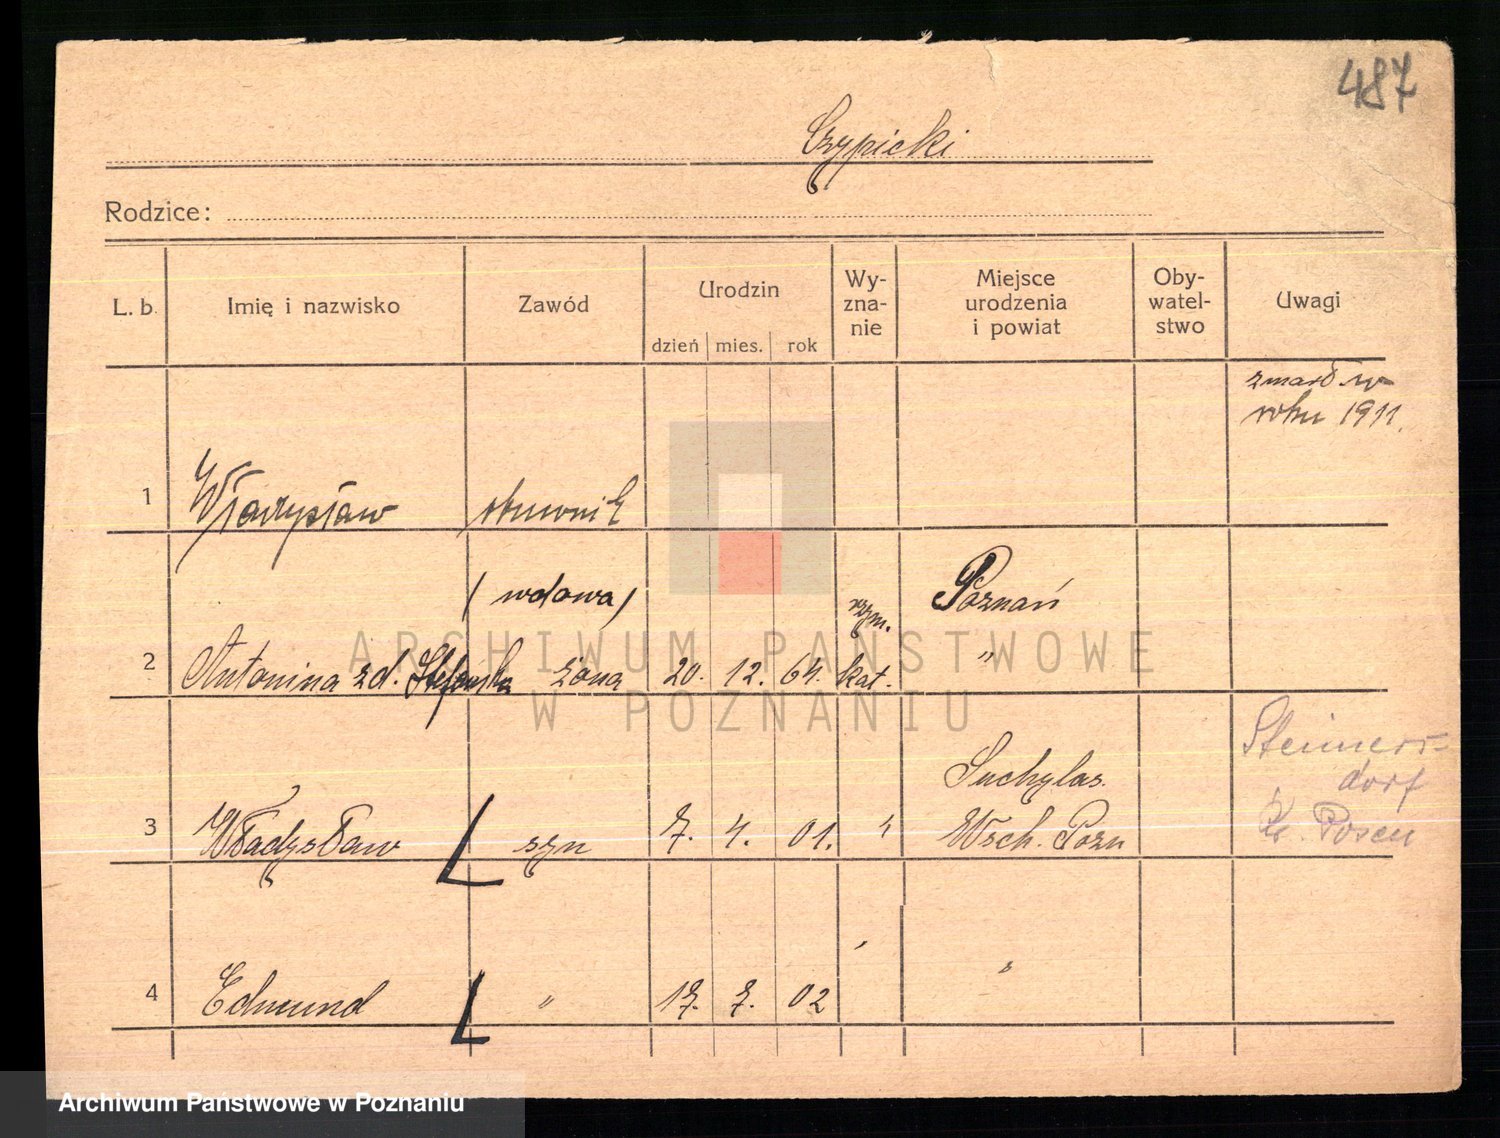 487
Czypicki
Rodzice:
L. b.
Imię i nazwisko
Zawód
Urodzin
dzień mies. rok
Wy-
zna-
nie
Miejsce
urodzenia
i powiat
Oby-
watel-
stwo
Uwagi
zmarł w
roku 1911.
1 Władysław obuwnik
(wdowa) rzym. Poznań
2 Antonina zd. Stefańska żona 20. 12. 64. kat. "
Suchylas.
3 Władysław syn 7. 4. 01. " Wsch. Pozn
Steiners-
dorf
Kr. Posen
4 Edmund " 17. 7. 02 " "
ARCHIWUM PAŃSTWOWE
W POZNANIU
Archiwum Państwowe w Poznaniu